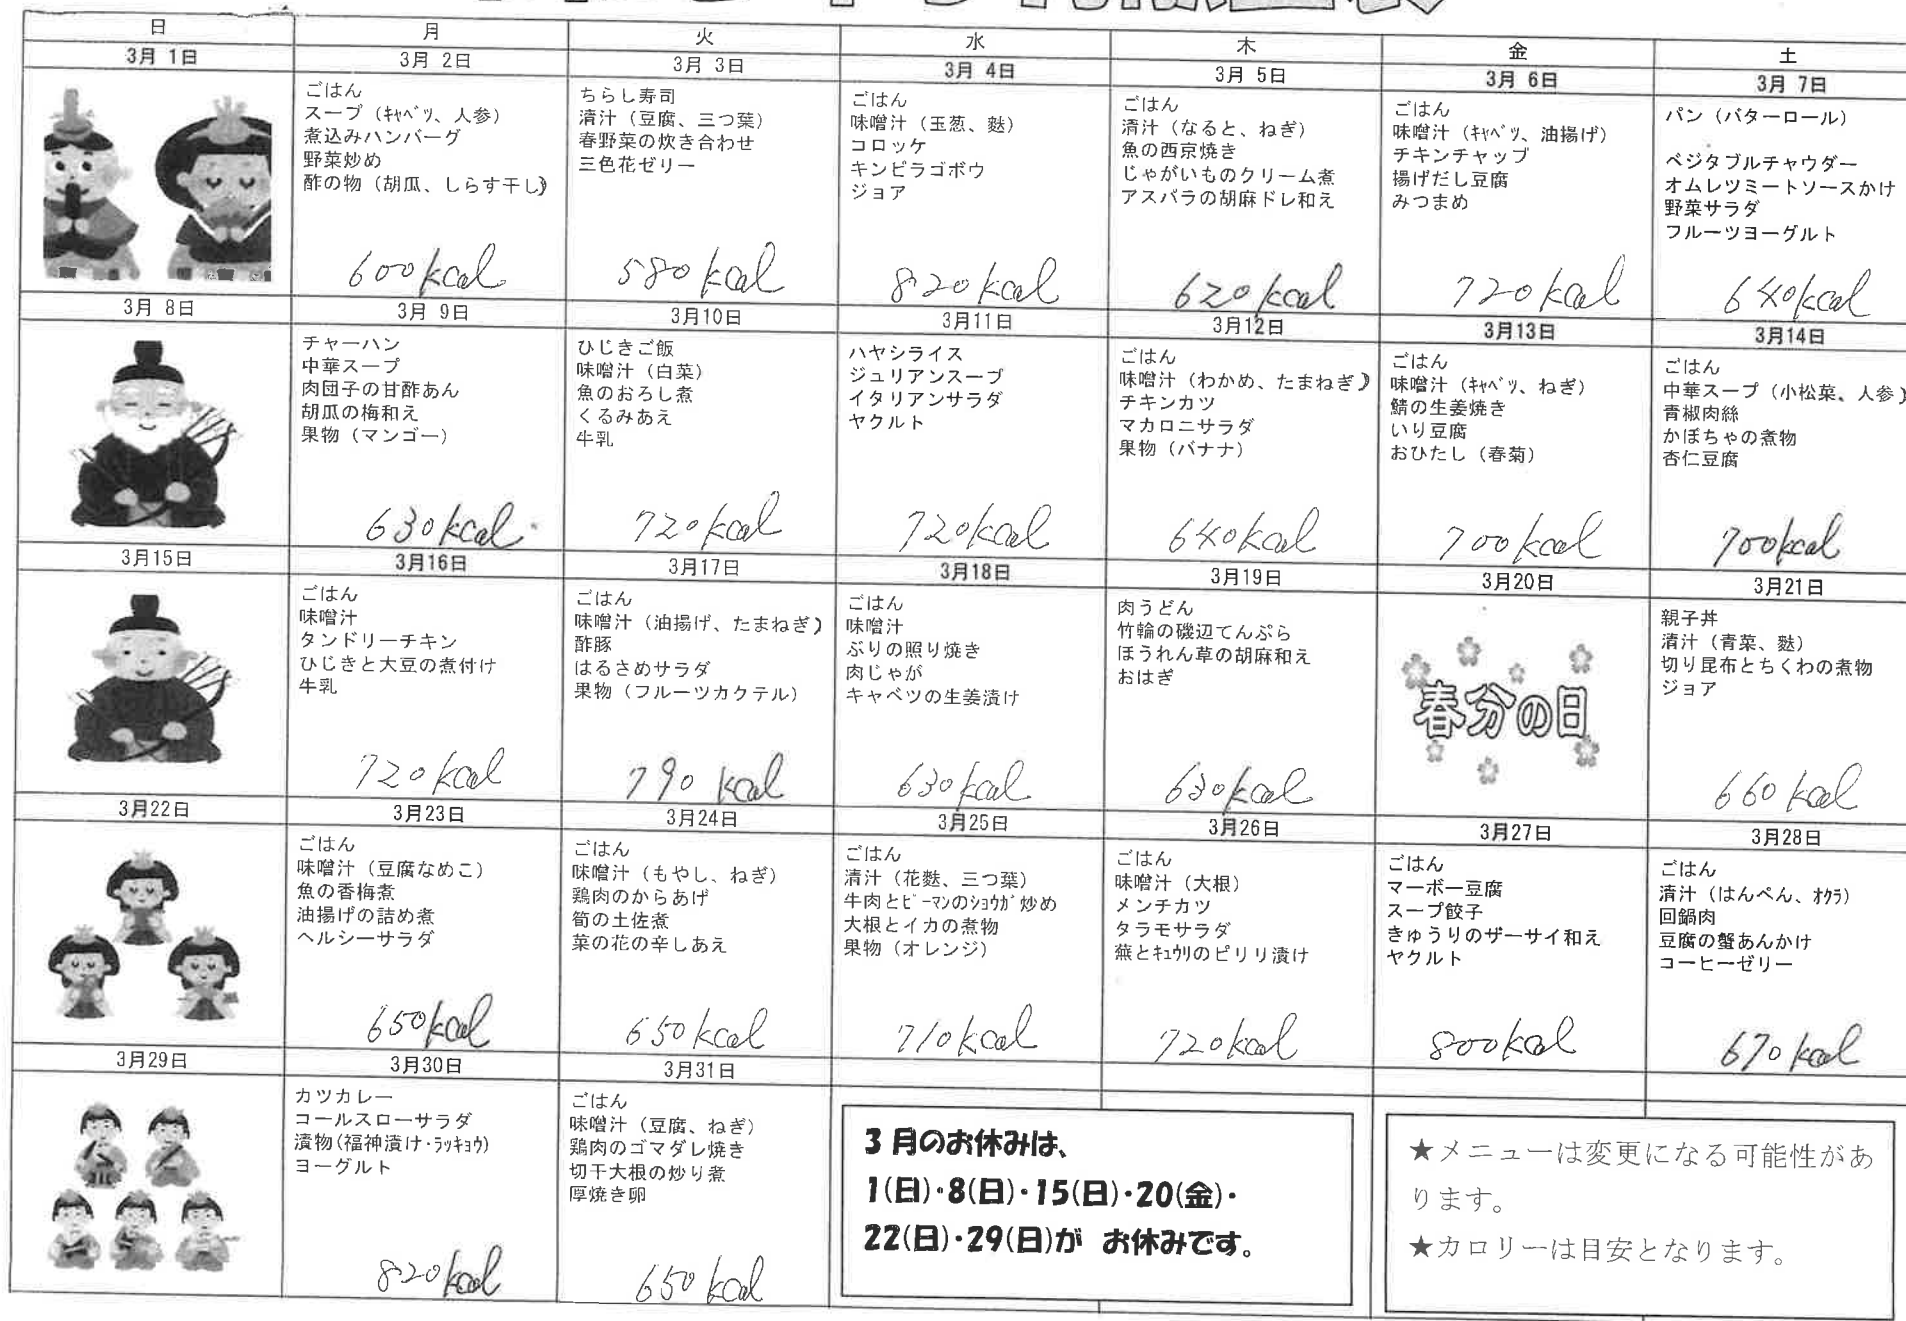 日 月 火 水 木 金 土
3月 1日 3月 2日 3月 3日 3月 4日 3月 5日 3月 6日 3月 7日
ごはん
スープ（ｷｬﾍﾞﾂ、人参）
煮込みハンバーグ
野菜炒め
酢の物（胡瓜、しらす干し）
600kcal
ちらし寿司
清汁（豆腐、三つ葉）
春野菜の炊き合わせ
三色花ゼリー
580kcal
ごはん
味噌汁（玉葱、麩）
コロッケ
キンピラゴボウ
ジョア
820kcal
ごはん
清汁（なると、ねぎ）
魚の西京焼き
じゃがいものクリーム煮
アスパラの胡麻ドレ和え
620kcal
ごはん
味噌汁（ｷｬﾍﾞﾂ、油揚げ）
チキンチャップ
揚げだし豆腐
みつまめ
720kcal
パン（バターロール）
ベジタブルチャウダー
オムレツミートソースかけ
野菜サラダ
フルーツヨーグルト
640kcal
3月 8日 3月 9日 3月10日 3月11日 3月12日 3月13日 3月14日
チャーハン
中華スープ
肉団子の甘酢あん
胡瓜の梅和え
果物（マンゴー）
630kcal
ひじきご飯
味噌汁（白菜）
魚のおろし煮
くるみあえ
牛乳
720kcal
ハヤシライス
ジュリアンスープ
イタリアンサラダ
ヤクルト
720kcal
ごはん
味噌汁（わかめ、たまねぎ）
チキンカツ
マカロニサラダ
果物（バナナ）
640kcal
ごはん
味噌汁（ｷｬﾍﾞﾂ、ねぎ）
鯖の生姜焼き
いり豆腐
おひたし（春菊）
700kcal
ごはん
中華スープ（小松菜、人参）
青椒肉絲
かぼちゃの煮物
杏仁豆腐
700kcal
3月15日 3月16日 3月17日 3月18日 3月19日 3月20日 3月21日
ごはん
味噌汁
タンドリーチキン
ひじきと大豆の煮付け
牛乳
720kcal
ごはん
味噌汁（油揚げ、たまねぎ）
酢豚
はるさめサラダ
果物（フルーツカクテル）
790 kcal
ごはん
味噌汁
ぶりの照り焼き
肉じゃが
キャベツの生姜漬け
630kcal
肉うどん
竹輪の磯辺てんぷら
ほうれん草の胡麻和え
おはぎ
630kcal
春分の日
親子丼
清汁（青菜、麩）
切り昆布とちくわの煮物
ジョア
660kcal
3月22日 3月23日 3月24日 3月25日 3月26日 3月27日 3月28日
ごはん
味噌汁（豆腐なめこ）
魚の香梅煮
油揚げの詰め煮
ヘルシーサラダ
650kcal
ごはん
味噌汁（もやし、ねぎ）
鶏肉のからあげ
筍の土佐煮
菜の花の辛しあえ
650kcal
ごはん
清汁（花麩、三つ葉）
牛肉とﾋﾟｰﾏﾝのｼｮｳｶﾞ炒め
大根とイカの煮物
果物（オレンジ）
710kcal
ごはん
味噌汁（大根）
メンチカツ
タラモサラダ
蕪とｷｭｳﾘのピリリ漬け
720kcal
ごはん
マーボー豆腐
スープ餃子
きゅうりのザーサイ和え
ヤクルト
800kcal
ごはん
清汁（はんぺん、ｵｸﾗ）
回鍋肉
豆腐の蟹あんかけ
コーヒーゼリー
670kcal
3月29日 3月30日 3月31日
カツカレー
コールスローサラダ
漬物(福神漬け･ﾗｯｷｮｳ)
ヨーグルト
820kcal
ごはん
味噌汁（豆腐、ねぎ）
鶏肉のゴマダレ焼き
切干大根の炒り煮
厚焼き卵
650kcal
3月のお休みは、
1(日)･8(日)･15(日)･20(金)･
22(日)･29(日)が お休みです。
★メニューは変更になる可能性があ
ります。
★カロリーは目安となります。